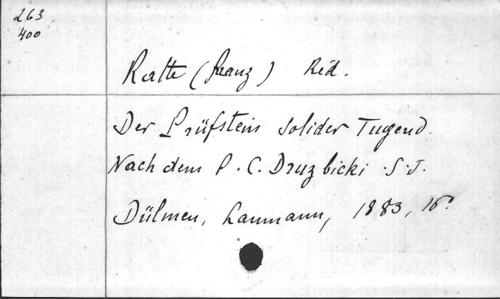 263
400
Ratte (Franz) Réd.
Der Prüfstein solider Tugend.
Nach dem P. C. Druzbicki S.J.
Dülmen, Laumann, 1883, 16°